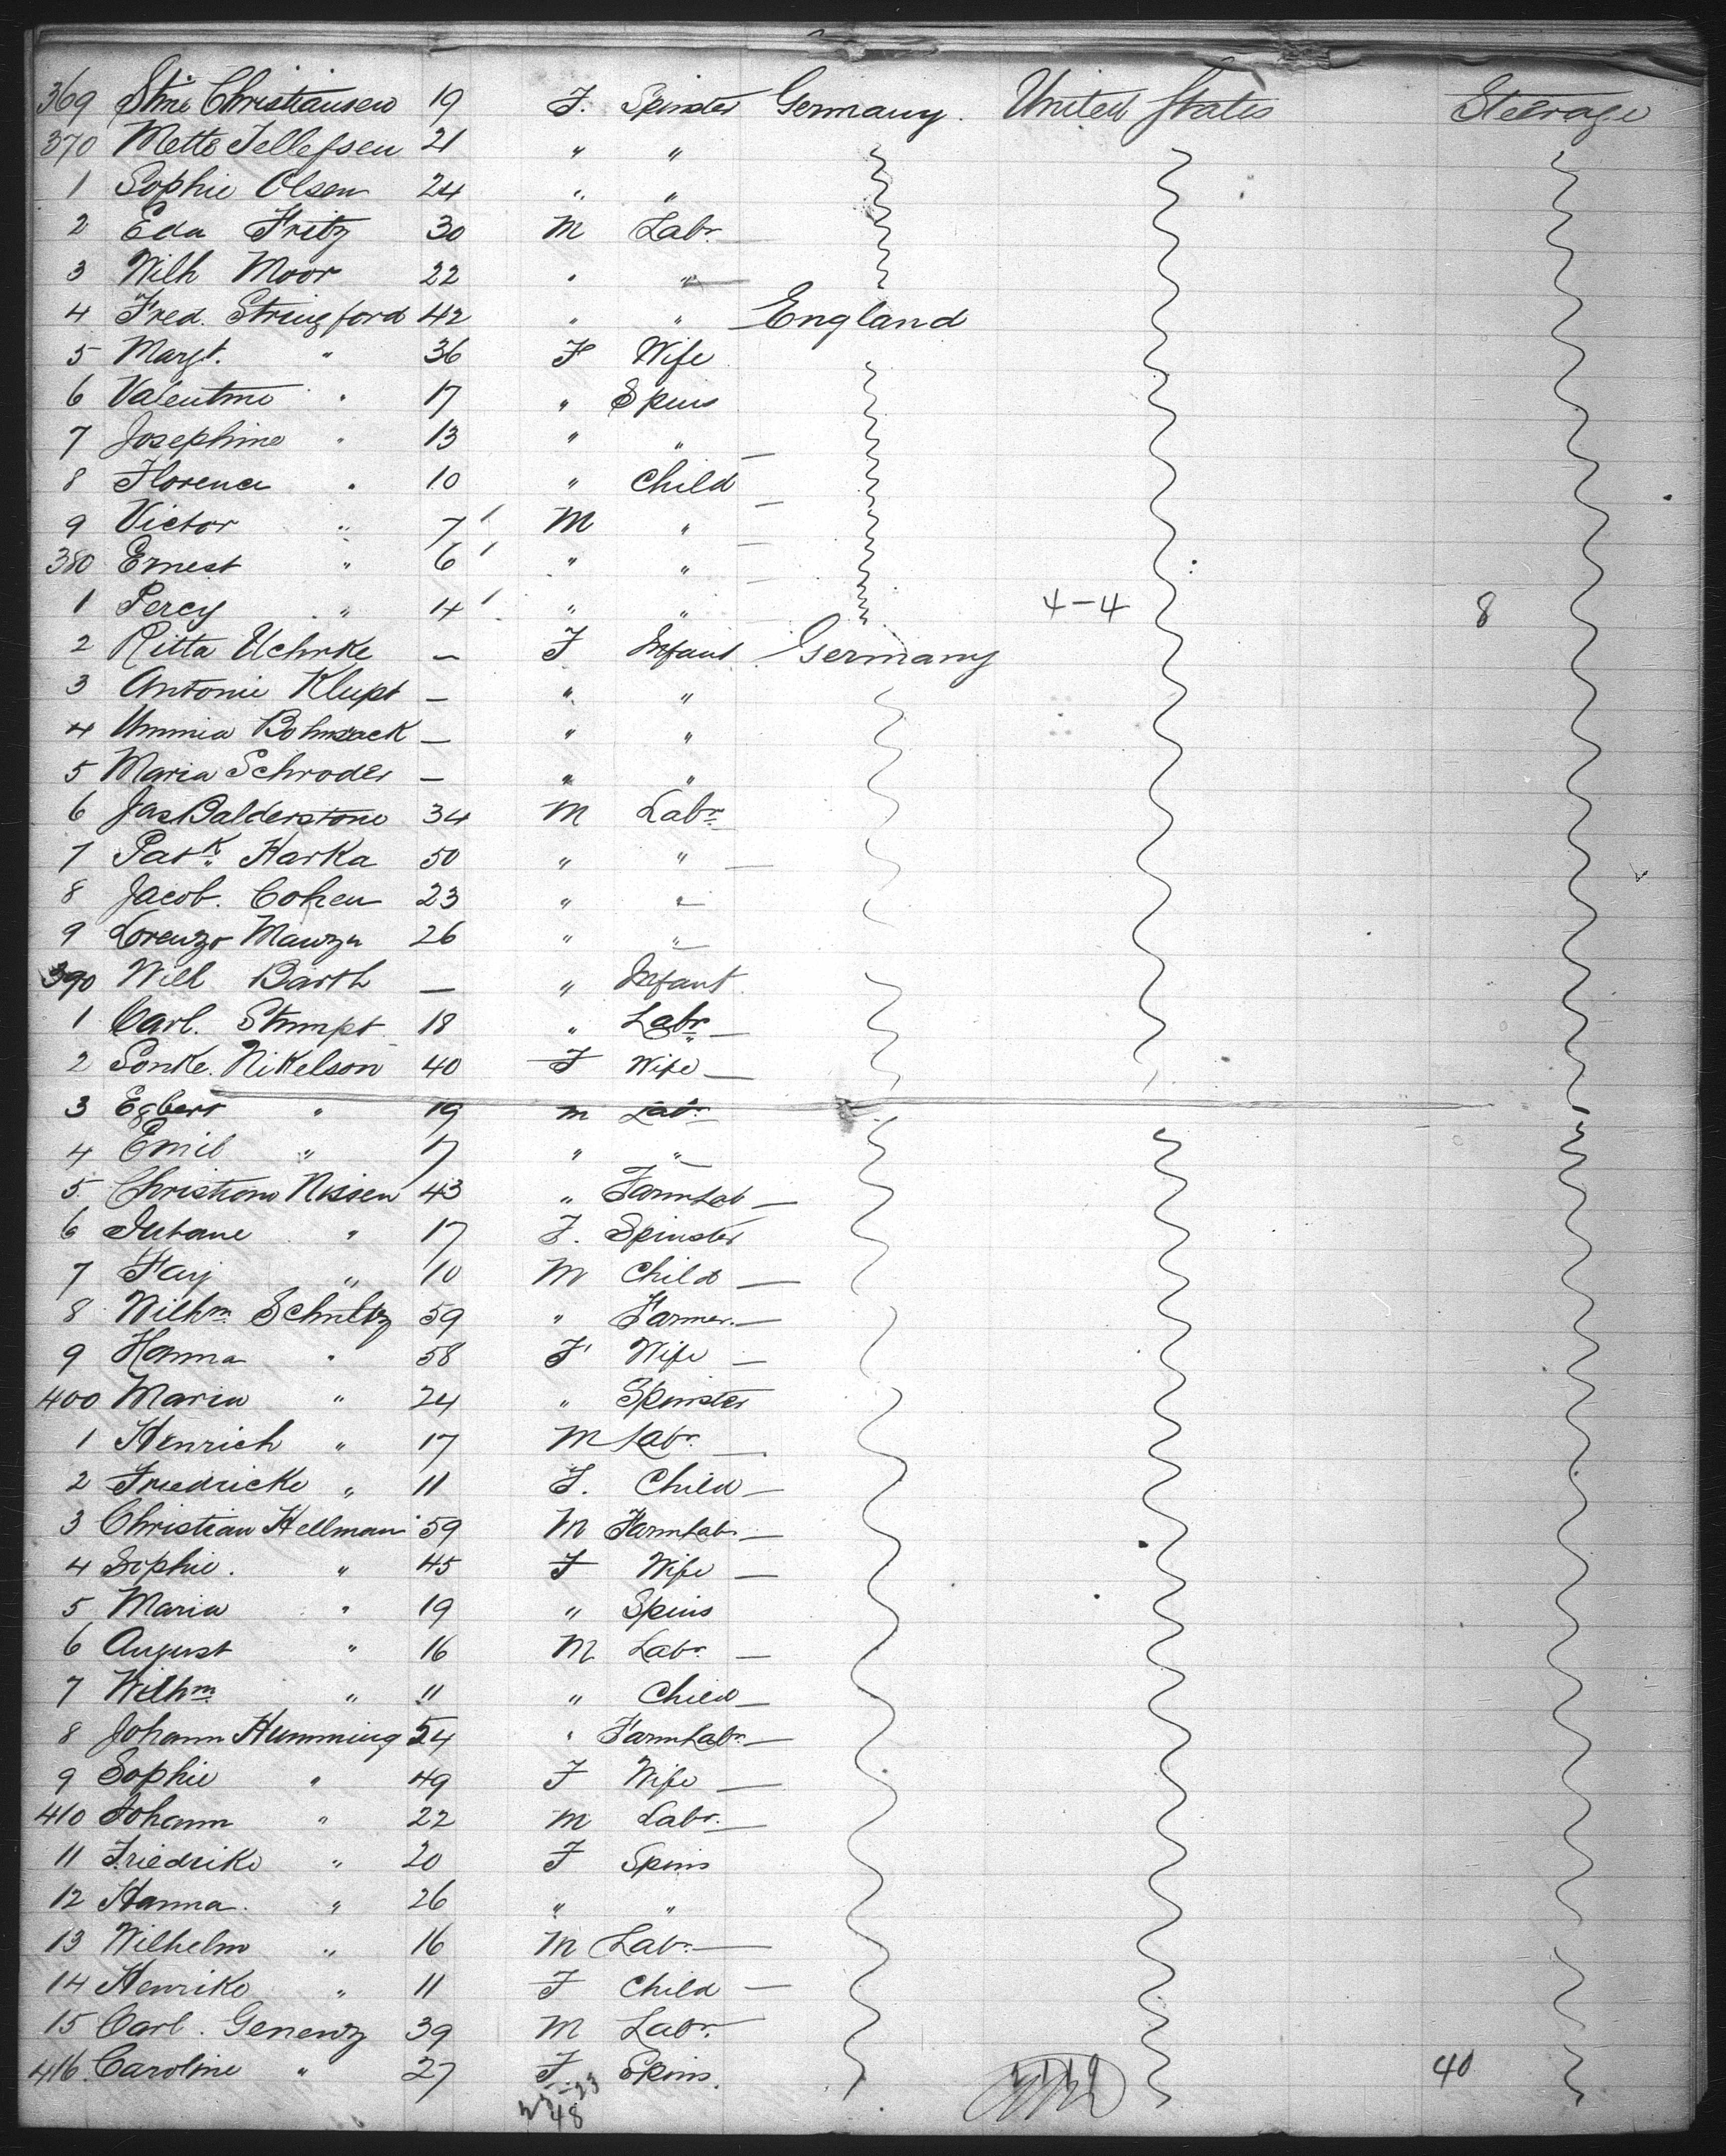 369 Stine Christiansen 19 F. Spinster Germany. United States Steerage
370 Mette Tellefsen 21 " "
1 Sophie Olsen 24 " "
2 Eda Fritz 30 M Labr.
3 Wilh Moor 22 " "
4 Fred. Stringford 42 " " England
5 Margt. " 36 F Wife
6 Valentine " 17 " Spins
7 Josephine " 13 " "
8 Florence " 10 " Child
9 Victor " 7 M "
380 Ernest " 6 " "
1 Percy " 4 " " 4-4 8
2 Ritta Uchrke — F Infant Germany
3 Antonie Klupt — " "
4 Ummia Bohnsack — " "
5 Maria Schroder — " "
6 Jas Balderstone 34 M Labr.
7 Patk. Harka 50 " "
8 Jacob. Cohen 23 " "
9 Lorenzo Mawzn 26 " "
390 Will Barth — " Infant
1 Carl. Stumpt 18 " Labr.
2 Sonke. Nikelson 40 F Wife
3 Egbert " 19 m Labr.
4 Emil " 17 " "
5 Christian Nissen 43 " Farm Lab
6 " 17 F. Spinster
7 Fay " 10 M Child
8 Wilhm. Schultz 59 " Farmer.
9 Hanna " 58 F Wife
400 Maria " 24 " Spinster
1 Henrich " 17 M Labr.
2 Friedricke " 11 F. Child
3 Christian Hellman 59 M Farm Labr.
4 Sophie. " 45 F Wife
5 Maria " 19 " Spins
6 August " 16 M Labr.
7 Wilhm. " 11 " Child
8 Johann Humming 54 " Farm Labr.
9 Sophie " 49 F Wife
410 Johann " 22 m Labr.
11 Friedrike " 20 F Spins
12 Hanna. " 26 " "
13 Wilhelm " 16 M Labr.
14 Henrike " 11 F Child
15 Carl. Genenz 39 M Labr.
416. Caroline " 27 F. Spins. 40
48